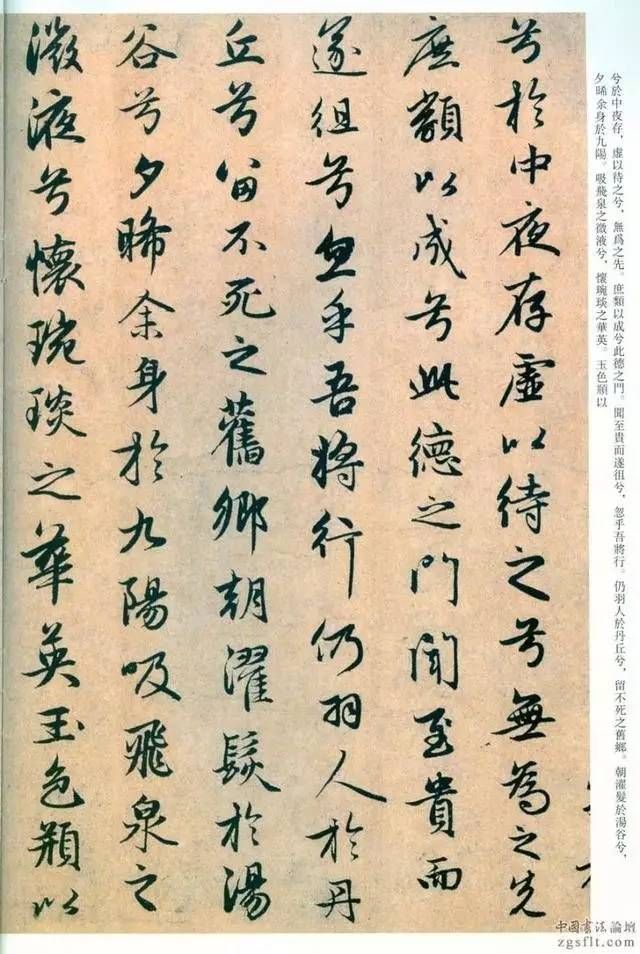 兮於中夜存虛以待之兮無為之先
庶類以成兮此德之門聞至貴而
遂徂兮忽乎吾將行仍羽人於丹
丘兮留不死之舊鄉朝濯髮於湯
谷兮夕晞余身於九陽吸飛泉之
微液兮懷琬琰之華英玉色頩以
兮於中夜存，虛以待之兮，無爲之先。庶類以成兮此德之門。聞至貴而遂徂兮，忽乎吾將行。仍羽人於丹丘兮，留不死之舊鄉。朝濯髮於湯谷兮，
夕晞余身於九陽。吸飛泉之微液兮，懷琬琰之華英。玉色頩以
中国书法論壇
zgsflt.com